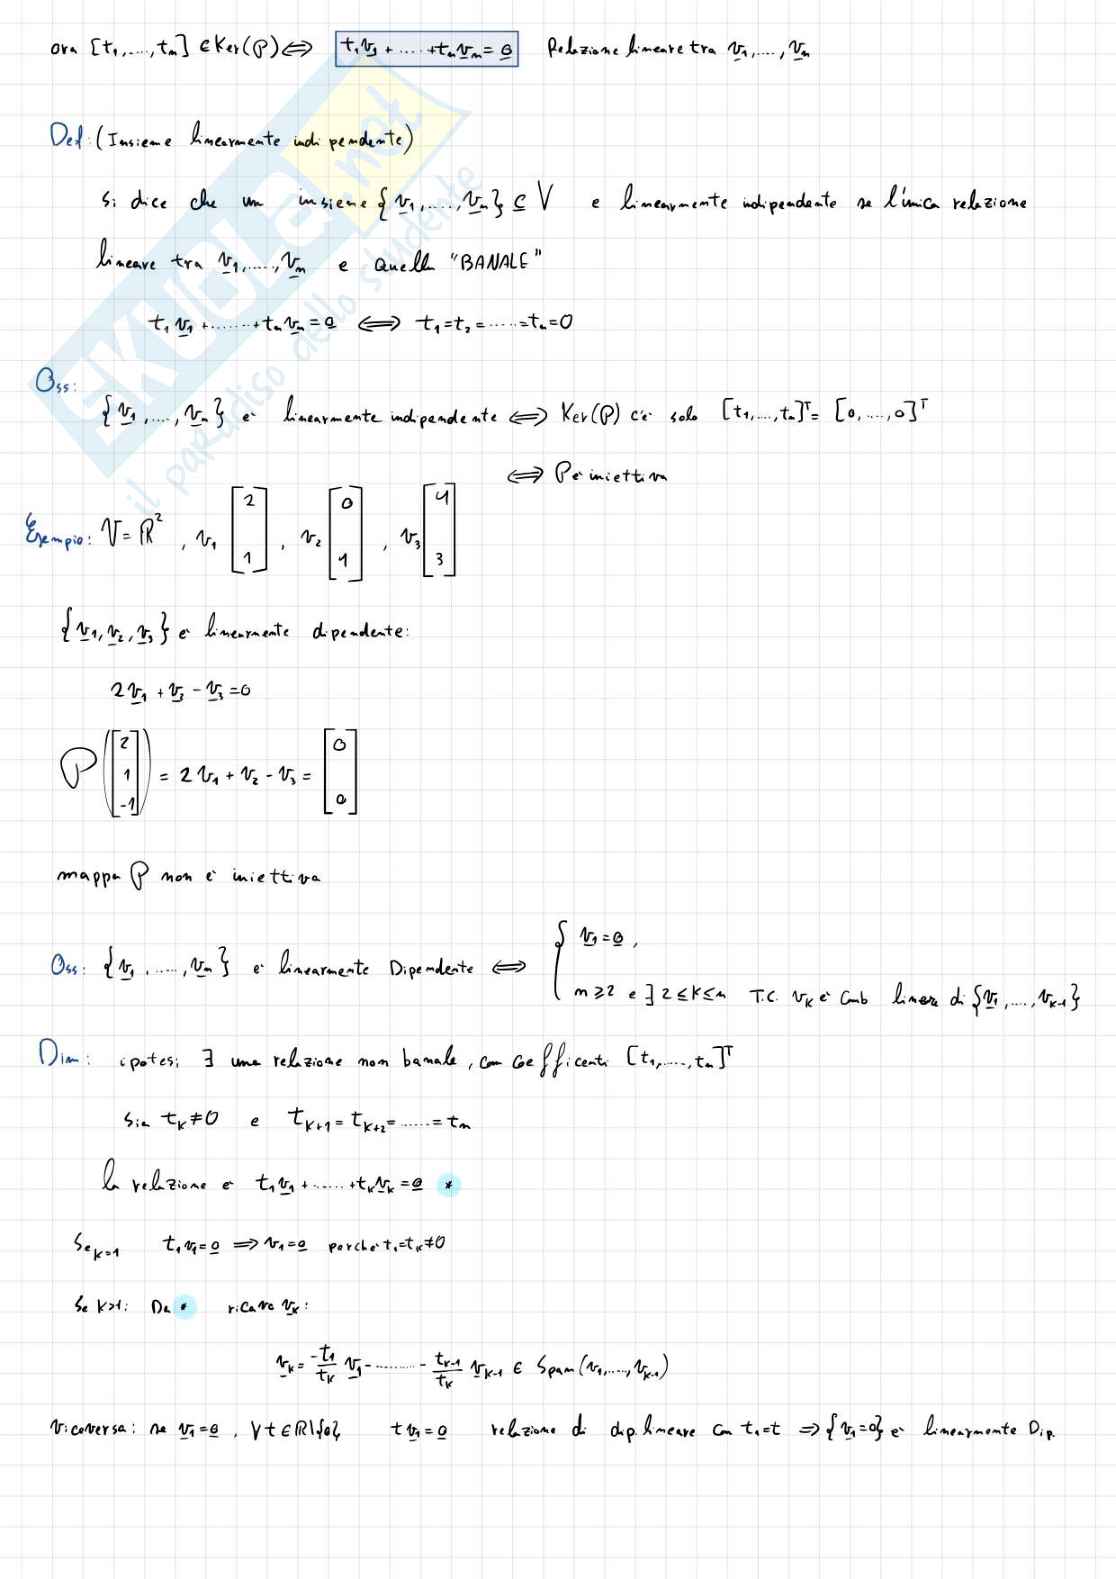 ora [t₁,....,tₙ] ∈ Ker(P) ⟺ t₁v₁ + ..... + tₙvₙ = 0 Relazione lineare tra v₁,...., vₙ
Def: (Insieme linearmente indipendente)
Si dice che un insieme {v₁,....,vₙ} ⊆ V e linearmente indipendente se l'unica relazione
lineare tra v₁,....., vₙ e quella "BANALE"
t₁v₁ +........+ tₙvₙ = 0 ⟺ t₁=t₂=......=tₙ=0
Oss:
{v₁,....,vₙ} e' linearmente indipendente ⟺ Ker(P) c'e' solo [t₁,...,tₙ]ᵀ= [0,....,0]ᵀ
⟺ P e' iniettiva
Esempio: V=ℝ², v₁ [2 1], v₂ [0 1], v₃ [4 3]
{v₁,v₂,v₃} e' linearmente dipendente:
2v₁ + v₃ - v₃ = 0
P([2 1 -1]) = 2v₁ + v₂ - v₃ = [0 0]
mappa P non e' iniettiva
Oss: {v₁,.....,vₙ} e' linearmente Dipendente ⟺ { v₁=0,
n≥2 e ∃ 2≤k≤n T.C. vₖ e' Comb linere di {v₁,....,vₖ₋₁}
Dim: ipotesi ∃ una relazione non banale, con Coefficenti [t₁,....,tₙ]ᵀ
Sia tₖ≠0 e tₖ₊₁=tₖ₊₂=......=tₙ
la relazione e' t₁v₁ +...... + tₖvₖ = 0 *
Se k=1 t₁v₁=0 ⟹ v₁=0 perche' t₁=tₖ≠0
Se k>1: Da * ricavo vₖ:
vₖ = -t₁/tₖ v₁ - ......... - tₖ₋₁/tₖ vₖ₋₁ ∈ Span(v₁,....,vₖ₋₁)
viceversa: se v₁=0, ∀t∈ℝ\{0}, tv₁=0 relazione di dip. lineare con t₁=t ⟹ {v₁=0} e' linearmente Dip.
SKUOLA.net
il paradiso dello studente